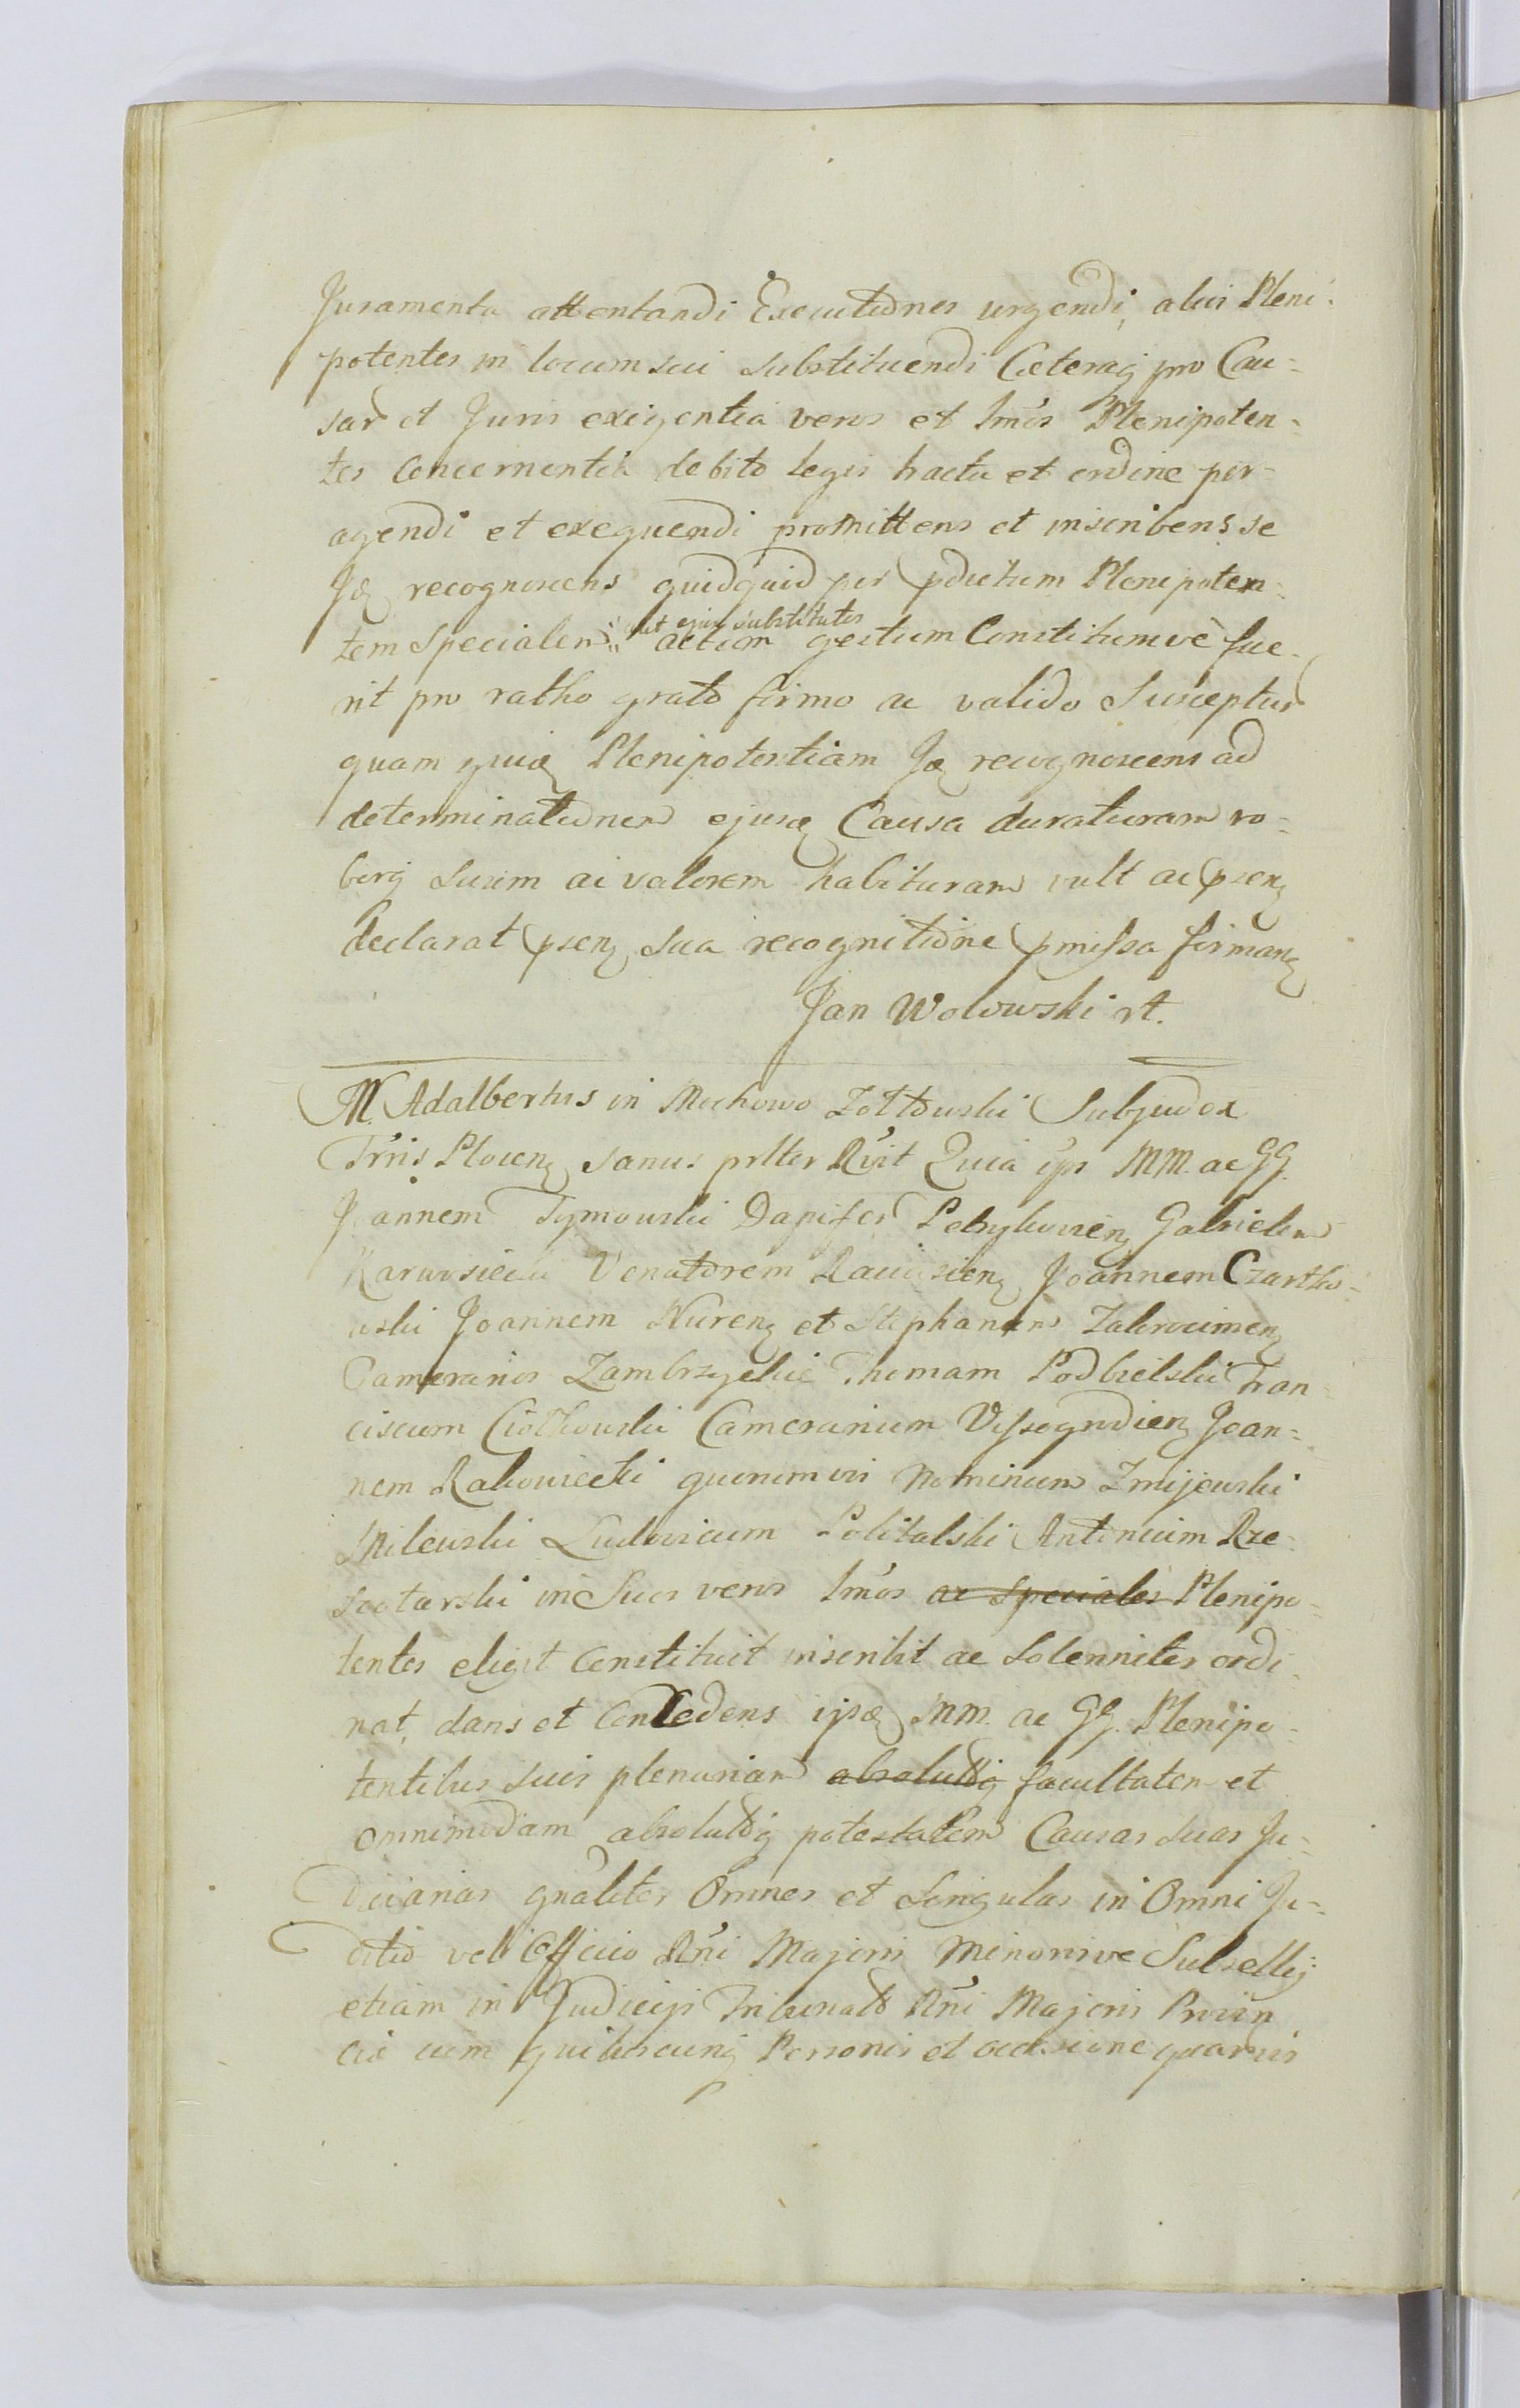 Juramenta attentandi Executiones urgendi, alios Pleni-
potentes in locum sui substituendi Caeteraq pro Cau-
sar et Juris exigentia veros et lmos Plenipoten-
tes Concernentia debito legis tractu et ordine per-
agendi et exequendi promittens et inscribens se
Jd recognoscens quidquid per pdictum Plenipoten-
tem Specialem aut ejus substitutos actum gestum Constitutumve fue-
rit pro ratho grato firmo ac valido Suscepturu
quam quid Plenipotentiam Jd recognoscens ad
determinationem ejusd Causa duraturam ro-
borq suum ac valorem habituram vult ac psen
declarat psen sua recognitione pmissa firman
Jan Wolowski rt.
M. Adalbertus in Mochowo Zołtowski Subjudex
Trris Plocen sanus prlter Rvit Quia ips MM. ac GG.
Joannem Tymowski Dapifer Petrykovien Gabrielem
Karwosiecki Venatorem Raciasien Joannem Czartko-
wski Joannem Nuren et Stephanum Zakrocimen
Camerarios Zambrzyckie Thomam Podbielski Fran-
ciscum Ciołkowski Camerarium Vissogrodien Joan-
nem Rakowiecki quonimvis Nominum Zmijewski
Milewski Ludovicum Politalski Antonium Rze-
szotarski in Suos veros lmos ac speciales Plenipo-
tentes eligit Constituit inscribit ac Solenniter ordi-
nat, dans et Concedens ipsd MM. ac GG. Plenipo-
tentibus suis plenariam absolutaq facultatem et
omnimodam absolutaq potestatem Causas suas Ju-
diciarias gnaliter Omnes et Singulas in Omni Ju-
ditio vel Officio Rni Majoris Minorisve Subsellij
etiam in Judicijs Tribunalo Rni Majoris Provin
cia cum quibuscunq Personis et occasione quarumvis